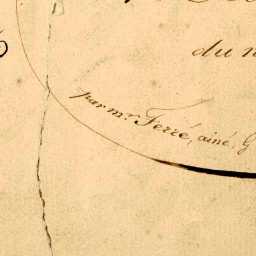 du
par mr. Ferré, ainé, G